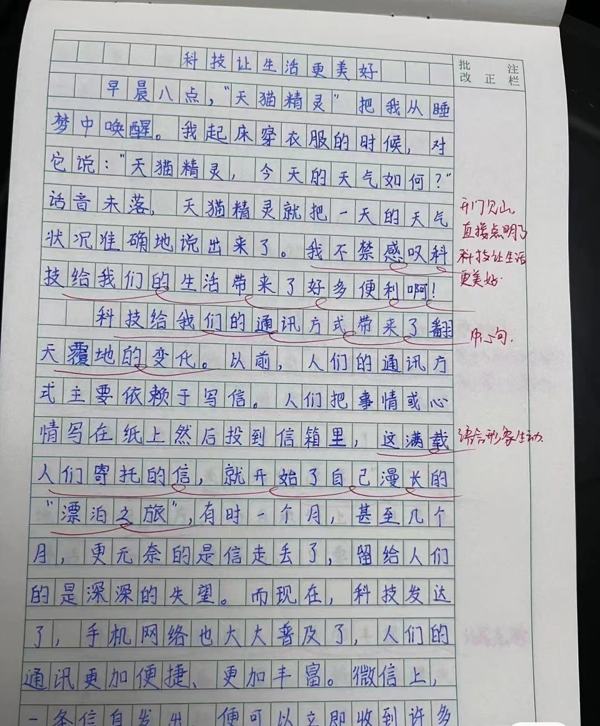 科技让生活更美好
批 注
改 正 栏
早晨八点，“天猫精灵”把我从睡
梦中唤醒。我起床穿衣服的时候，对
它说：“天猫精灵，今天的天气如何？”
话音未落，天猫精灵就把一天的天气
状况准确地说出来了。我不禁感叹科
技给我们的生活带来了好多便利啊！
开门见山，
直接点明了
科技让生活
更美好。
科技给我们的通讯方式带来了翻
天覆地的变化。以前，人们的通讯方
中心句。
式主要依赖于写信。人们把事情或心
情写在纸上然后投到信箱里，这满载
人们寄托的信，就开始了自己漫长的
形象生动
“漂泊之旅”，有时一个月，甚至几个
月，更无奈的是信走丢了，留给人们
的是深深的失望。而现在，科技发达
了，手机网络也大大普及了，人们的
通讯更加便捷、更加丰富。微信上，
一条信息发出，便可以立即收到许多